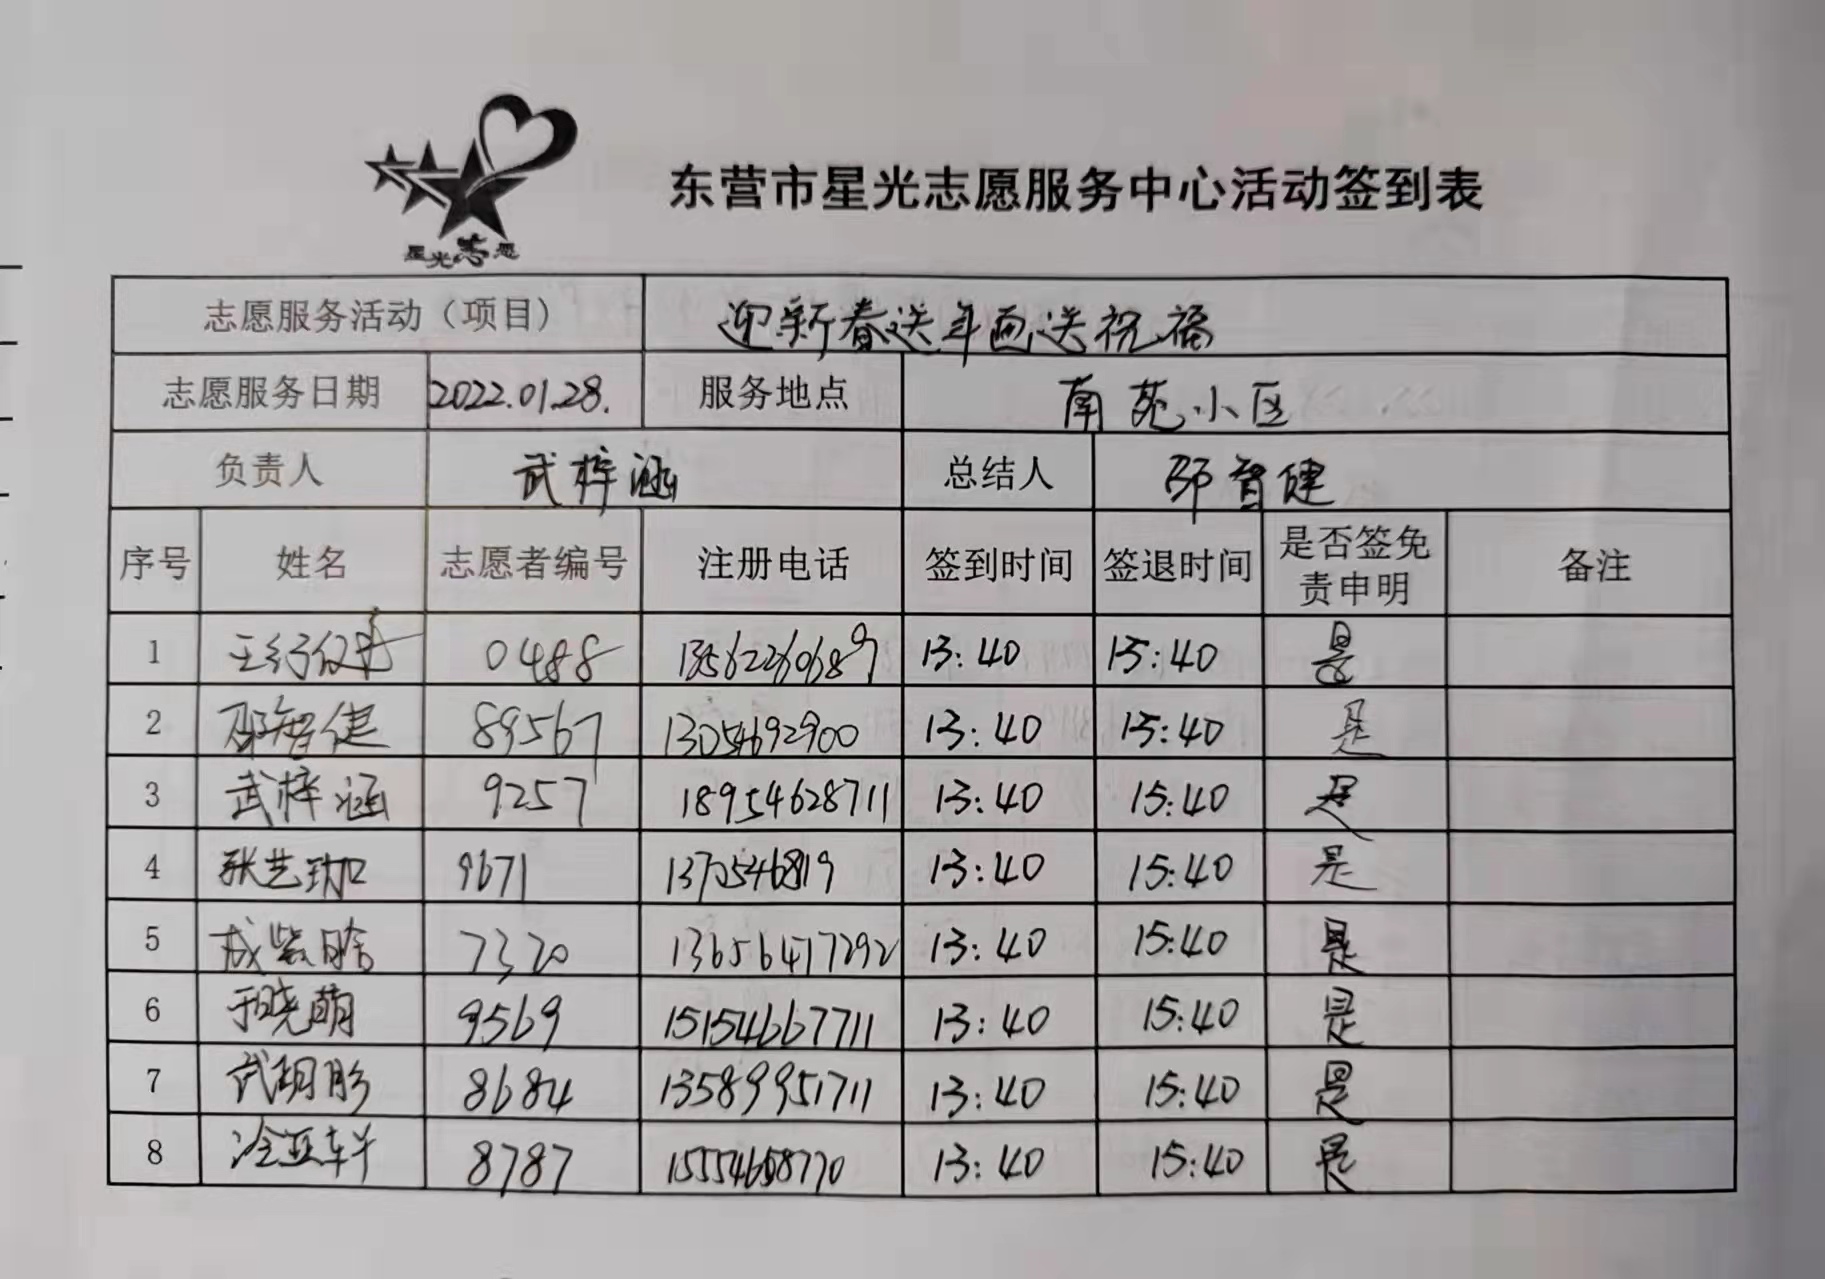 星光志愿
东营市星光志愿服务中心活动签到表
志愿服务活动（项目） 迎新春送年画送祝福
志愿服务日期 2022.01.28. 服务地点 南苑小区
负责人 武梓涵 总结人 邵智健
序号 姓名 志愿者编号 注册电话 签到时间 签退时间 是否签免责申明 备注
1 0488 13562260689 13:40 15:40 是
2 邵智健 89567 13054692900 13:40 15:40 是
3 武梓涵 9257 18954628711 13:40 15:40 是
4 张艺珈 9671 13:40 15:40 是
5 成紫晗 7320 13656477292 13:40 15:40 是
6 于晓萌 9569 15154667711 13:40 15:40 是
7 武玥彤 8684 13589951711 13:40 15:40 是
8 冷亚轩 8787 13:40 15:40 是